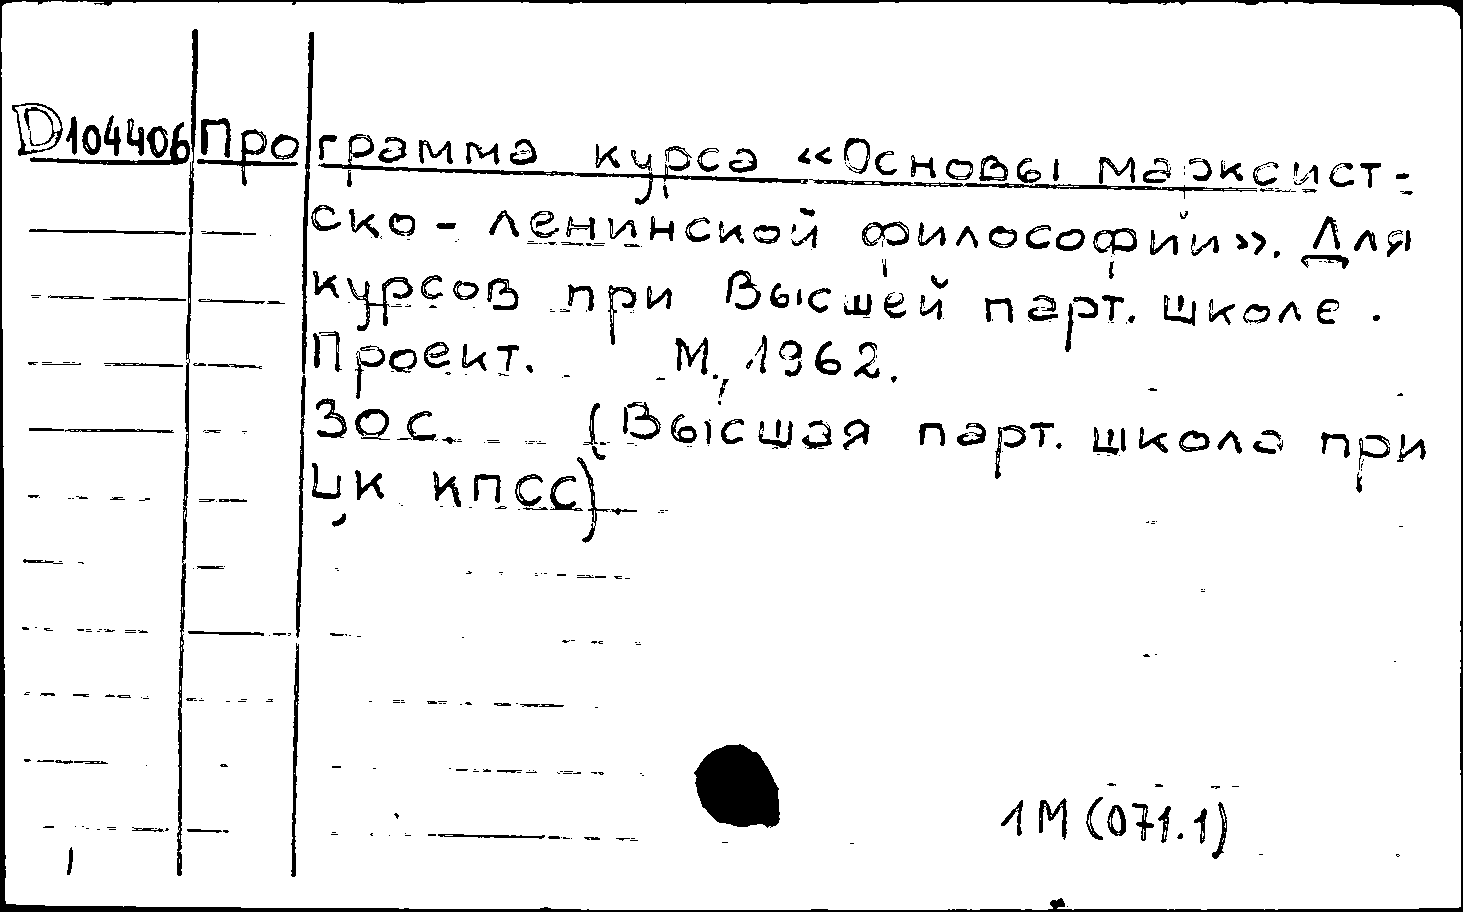 D104406 Программа курса «Основы марксист-
ско-ленинской философии». Для
курсов при Высшей парт. школе.
Проект. М., 1962.
30 с. (Высшая парт. школа при
ЦК КПСС)
1М(071.1)